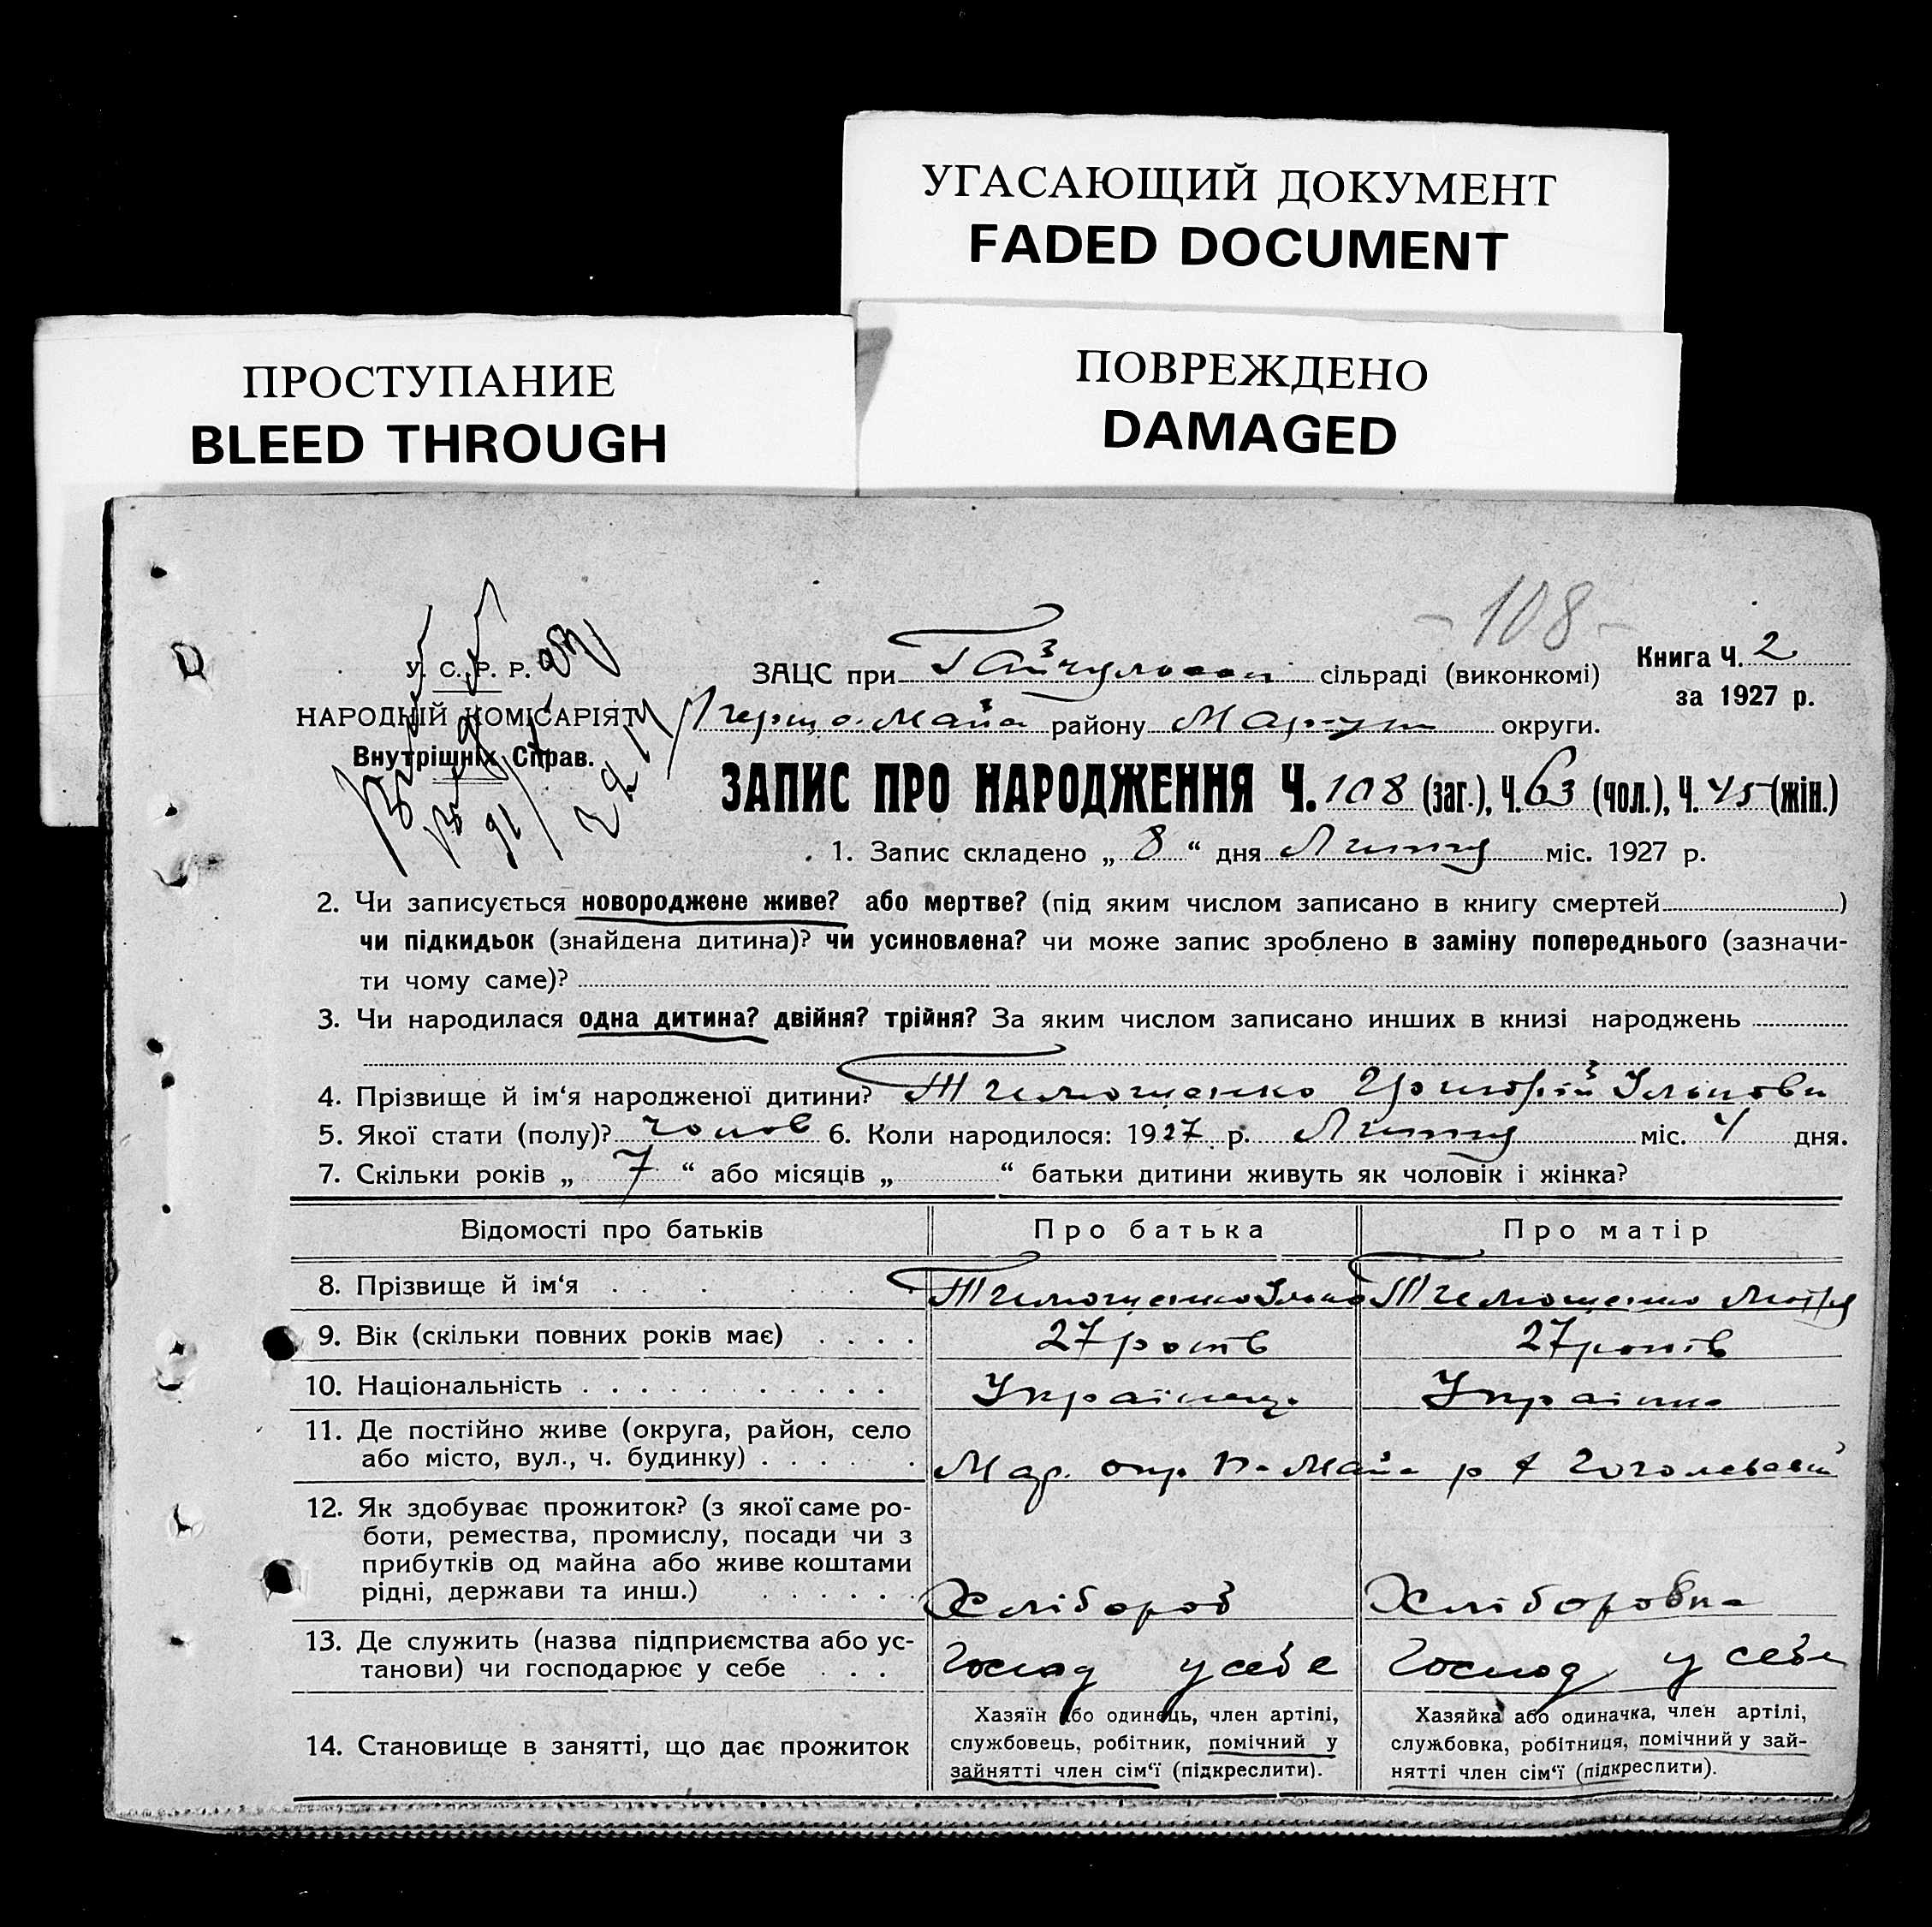 УГАСАЮЩИЙ ДОКУМЕНТ
FADED DOCUMENT
ПРОСТУПАНИЕ
BLEED THROUGH
ПОВРЕЖДЕНО
DAMAGED
-108-
У. С. Р. Р.
НАРОДНІЙ КОМІСАРІЯТ
Внутрішніх Справ.
ЗАЦС при Гайчульській сільраді (виконкомі) Книга Ч. 2
за 1927 р.
Першо-Майс району Маріуп округи.
ЗАПИС ПРО НАРОДЖЕННЯ Ч. 108 (заг.), Ч. 63 (чол.), Ч. 45 (жін.)
1. Запис складено „ 8 “ дня Липня міс. 1927 р.
2. Чи записується новороджене живе? або мертве? (під яким числом записано в книгу смертей )
чи підкидьок (знайдена дитина)? чи усиновлена? чи може запис зроблено в заміну попереднього (зазначи-
ти чому саме)?
3. Чи народилася одна дитина? двійня? трійня? За яким числом записано инших в книзі народжень
4. Прізвище й ім‘я народженої дитини? Тимошенко Григорій Ількови
5. Якої стати (полу)? чолов 6. Коли народилося: 1927 р. Липня міс. 4 дня.
7. Скільки років „ 7 “ або місяців „ “ батьки дитини живуть як чоловік і жінка?
Відомості про батьків Про батька Про матір
8. Прізвище й ім‘я Тимошенко Ілько Тимошенко
9. Вік (скільки повних років має) 27 років 27 років
10. Національність Українець Українка
11. Де постійно живе (округа, район, село
або місто, вул., ч. будинку) Мар. окр. П-Майс р
12. Як здобуває прожиток? (з якої саме ро-
боти, ремества, промислу, посади чи з
прибутків од майна або живе коштами
рідні, держави та инш.) Хлібороб Хліборобка
13. Де служить (назва підприємства або ус-
танови) чи господарює у себе Господ у себе Господ у себе
14. Становище в занятті, що дає прожиток
Хазяїн або одинець, член артілі,
службовець, робітник, помічний у
зайнятті член сім‘ї (підкреслити).
Хазяйка або одиначка, член артілі,
службовка, робітниця, помічний у зай-
нятті член сім‘ї (підкреслити).